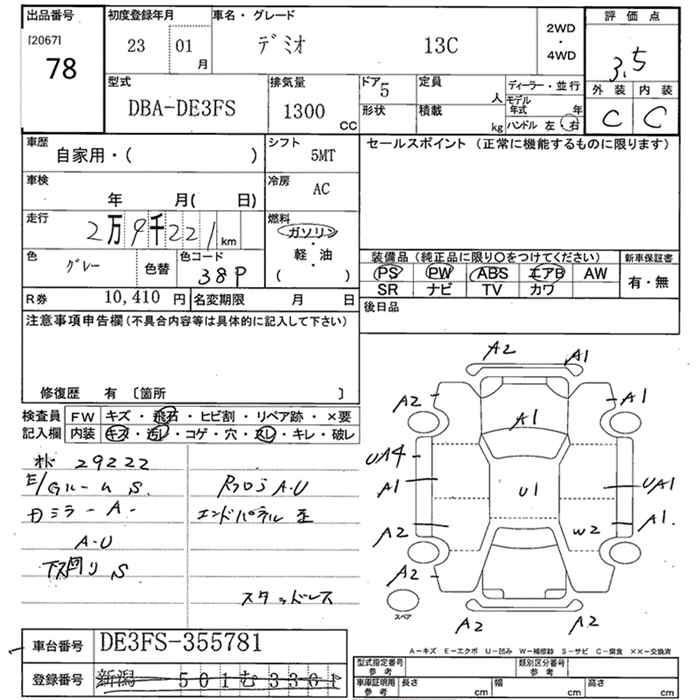 出品番号 初度登録年月 車名・グレード 2WD・4WD 評価点
[2067] 78 23 01月 デミオ 13C 3.5
外装 内装
C C
型式 排気量 ドア 定員 ディーラー・並行
DBA-DE3FS 1300cc 5 人 モデル年式 年
形状 積載 kg ハンドル 左・右
車歴 シフト セールスポイント(正常に機能するものに限ります)
自家用・( ) 5MT
車検 冷房
年 月( 日) AC
走行 燃料
2万9千221km ガソリン・軽油
色 色替 色コード ( )
グレー 38P
装備品(純正品に限り○をつけてください) 新車保証書
PS PW ABS エアB AW 有・無
SR ナビ TV カワ
R券 10,410円 名変期限 月 日 後日品
注意事項申告欄(不具合内容等は具体的に記入して下さい)
修復歴 有 〔箇所 〕
検査員 FW キズ・飛石・ヒビ割・リペア跡・×要
記入欄 内装 キズ・汚レ・コゲ・穴・スレ・キレ・破レ
29222
S.
ミラーA-
エンドパネル
A-U
下回りS
スタッドレス
A2 A1
A2 A1 A1
UA4
A1 U1 UA1
A2 W2 A1.
A2 A2
A2
スペア
A-キズ E-エクボ U-凹み W-補修跡 S-サビ C-腐食 ××-交換済
車台番号 DE3FS-355781
登録番号 新潟 501む3361
型式指定番号 参考 類別区分番号 参考
車庫証明用 参考 長さ cm 幅 cm 高さ cm